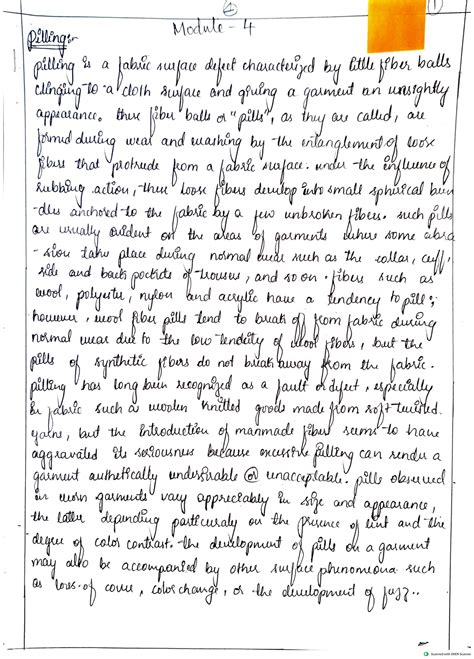 Module - 4
Pilling:-
pilling is a fabric surface defect characterized by little fiber balls
clinging to a cloth surface and giving a garment an unsightly
appearance. these fiber balls or "pills", as they are called, are
formed during wear and washing by the entanglement of loose
fibers that protrude from a fabric surface. under the influence of
rubbing action, these loose fibers develop into small spherical bun
-dles anchored to the fabric by a few unbroken fibers. such pills
are usually evident on the areas of garments where some abra
-sion take place during normal wear such as the collar, cuff,
side and back pockets of trouser, and so on. fibers such as
wool, polyester, nylon and acrylic have a tendency to pill;
however, wool fiber pills tend to break off from fabric during
normal wear due to the low tendcity of wool fibers, but the
pills of synthetic fibers do not break away from the fabric.
pilling has long been recognized as a fault or defect, especially
in fabric such a woolen knitted goods made from soft twisted.
yarns, but the introduction of manmade fibers seems to have
aggravated its seriousness because excessive pilling can render a
garment authetically undesirable or unacceptable. pills observed
in worn garments vary appreciably in size and appearance,
the latter depending particuraly on the presence of lint and the
degree of color contrast. the development of pills on a garment
may also be accompanied by other surface phenomeona such
as loss of cover, color change, or the development of fuzz..
Scanned with OKEN Scanner